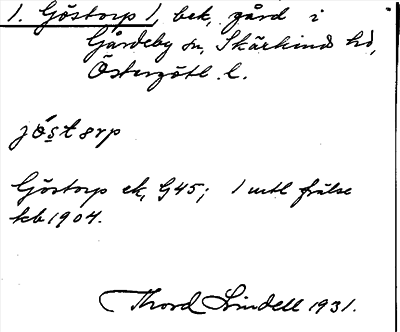 1. Göstorp 1, bek, gård i
Gårdeby sn, Skärkinds hd,
Östergötl. l.
jöstørp
Göstorp ek, G45; 1 mtl frälse
kb 1904.
Thord Lindell 1931.